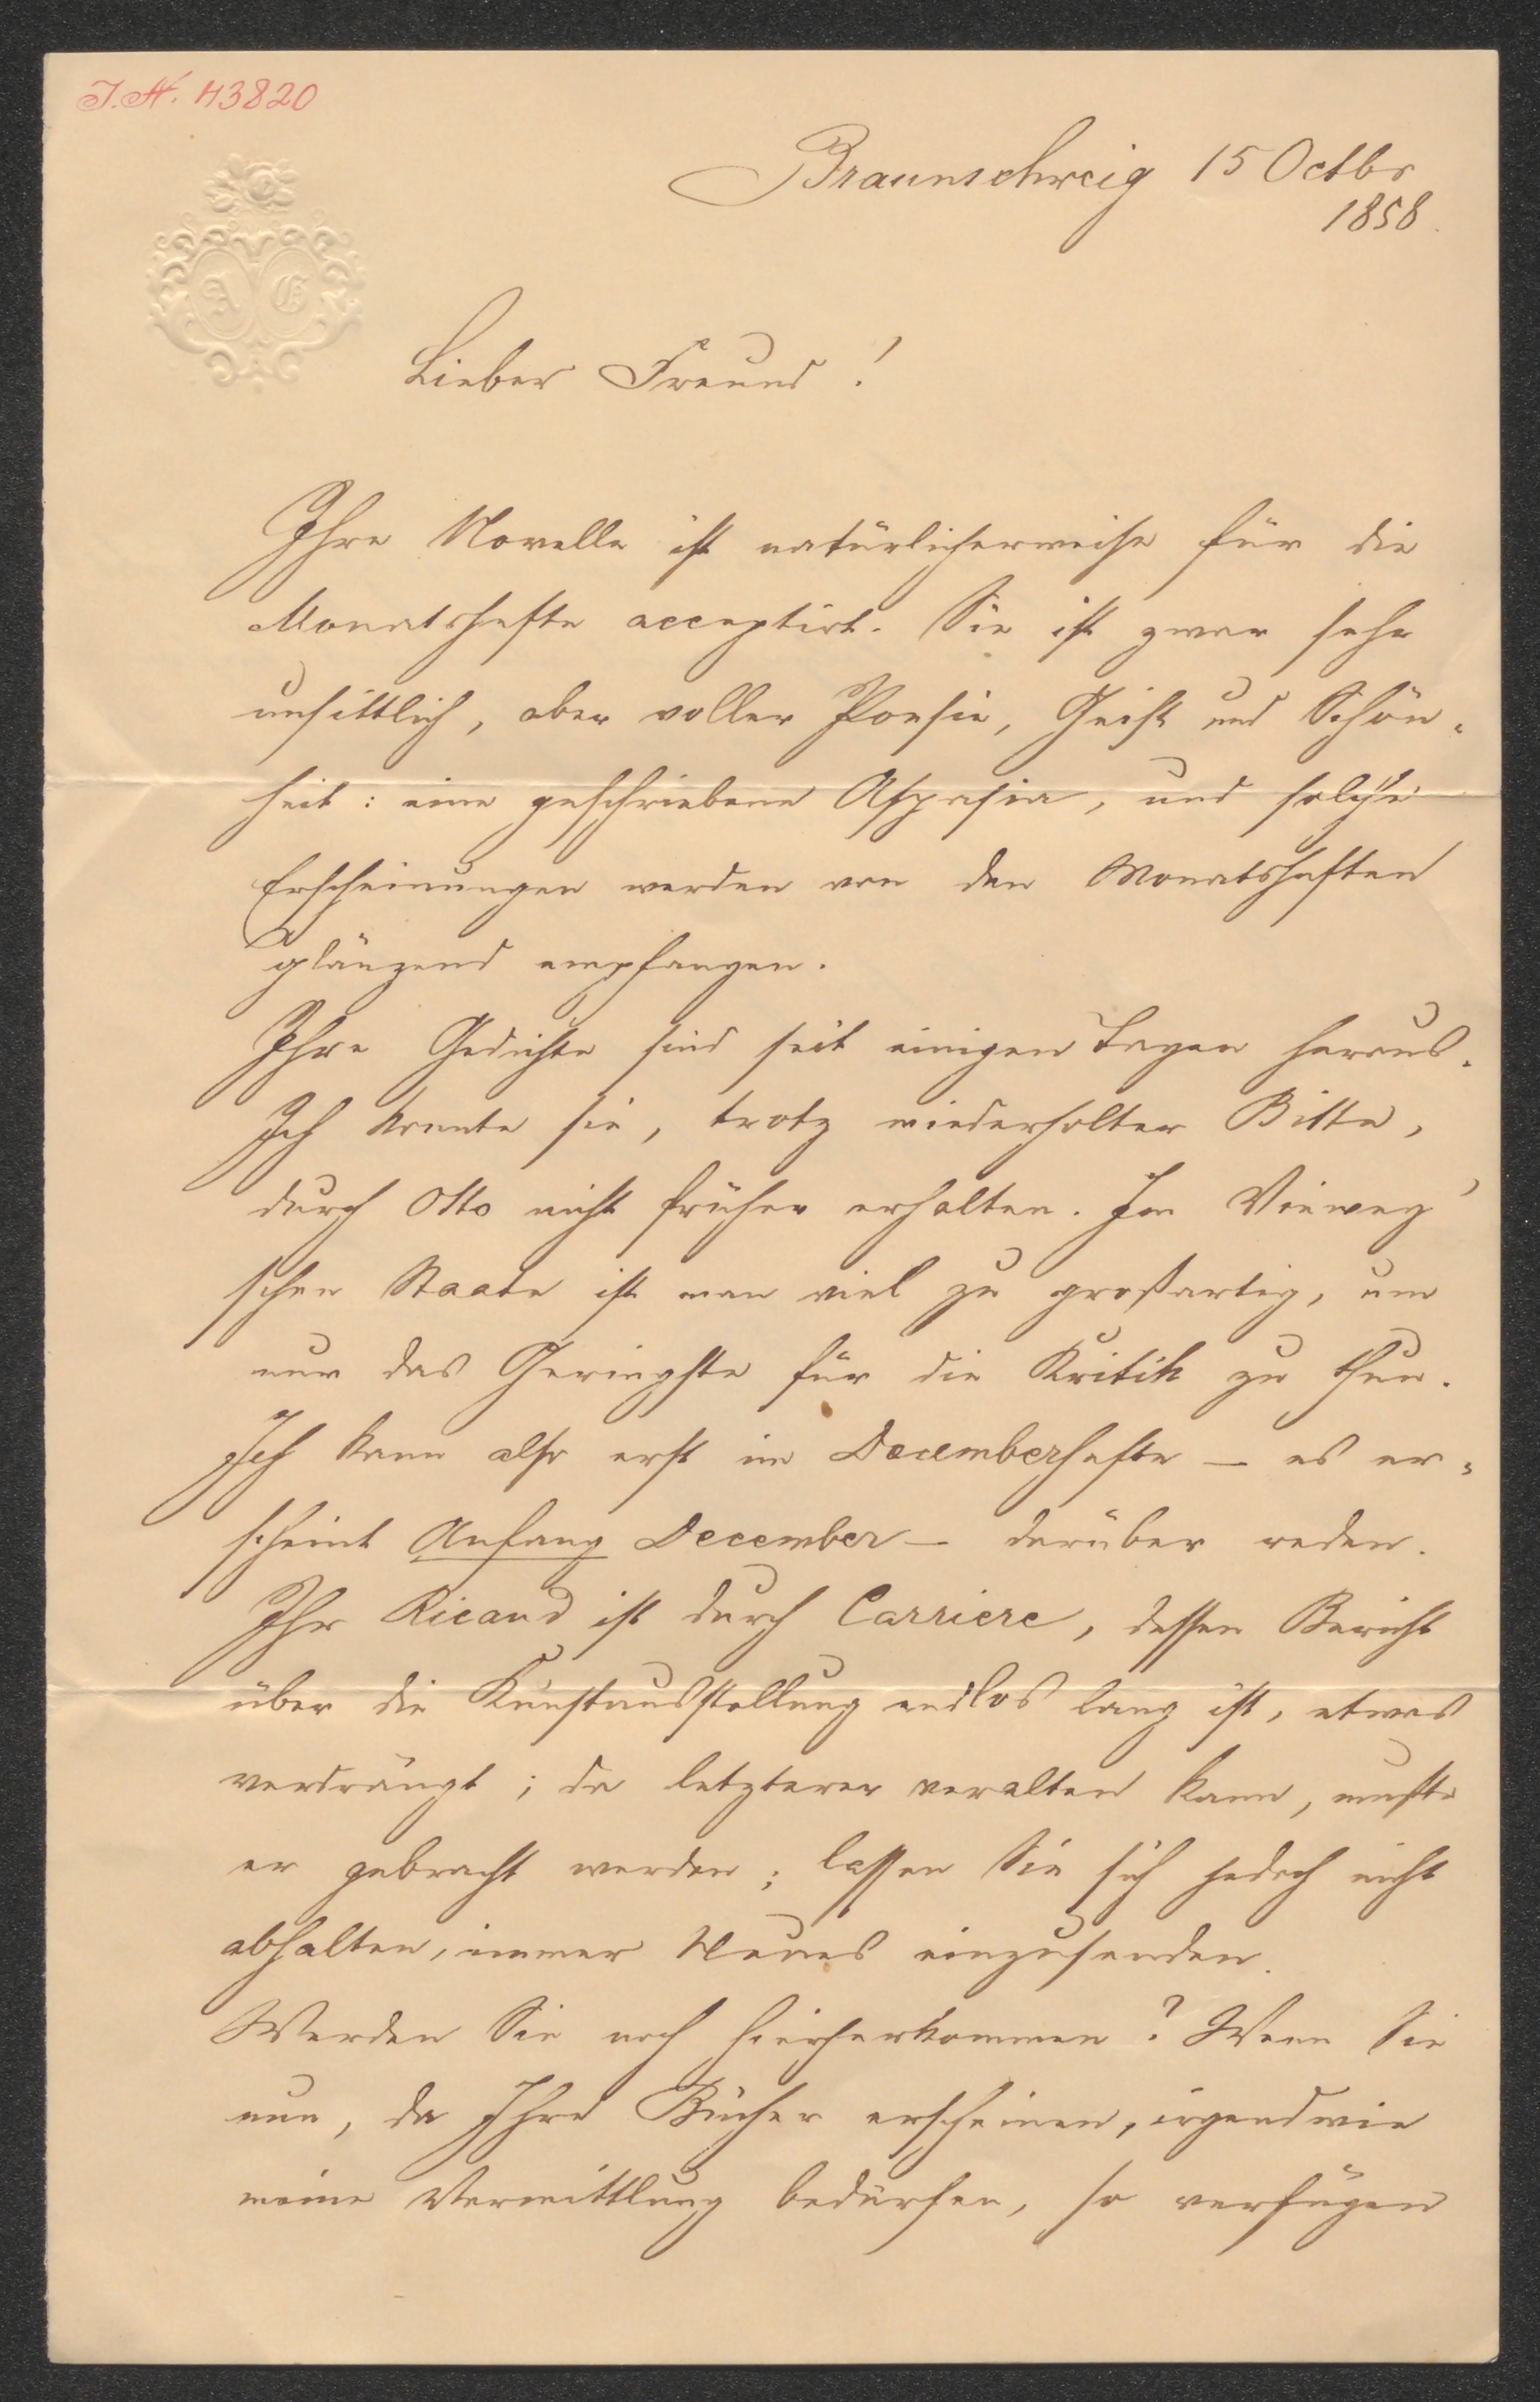 I.N. 43820
Braunschweig 15 Octbr
1858.
A E
Lieber Freund!
Ihre Novelle ist natürlicherweise für die
Monatshefte acceptirt. Sie ist zwar sehr
unsittlich, aber voller Poesie, Geist und Schön-
heit: eine geschriebene Aspasia, und solche
Erscheinungen werden von den Monatsheften
glänzend empfangen.
Ihre Gedichte sind seit einigen Tagen heraus.
Ich konnte sie, trotz wiederholter Bitte,
durch Otto nicht früher erhalten. Im Vieweg'
schen Staate ist man viel zu großartig, um
nur das Geringste für die Kritik zu thun.
Ich kann also erst im Decemberhefte – es er-
scheint Anfang December – darüber reden.
Ihr Ricaud ist durch Carriere, dessen Bericht
über die Kunstausstellung endlos lang ist, etwas
verdrängt; da letzterer veralten kann, mußte
er gebracht werden; lassen Sie sich jedoch nicht
abhalten, immer Neues einzusenden.
Werden Sie noch hierherkommen? Wenn Sie
nun, da Ihre Bücher erscheinen, irgendwie
meine Vermittlung bedürfen, so verfügen